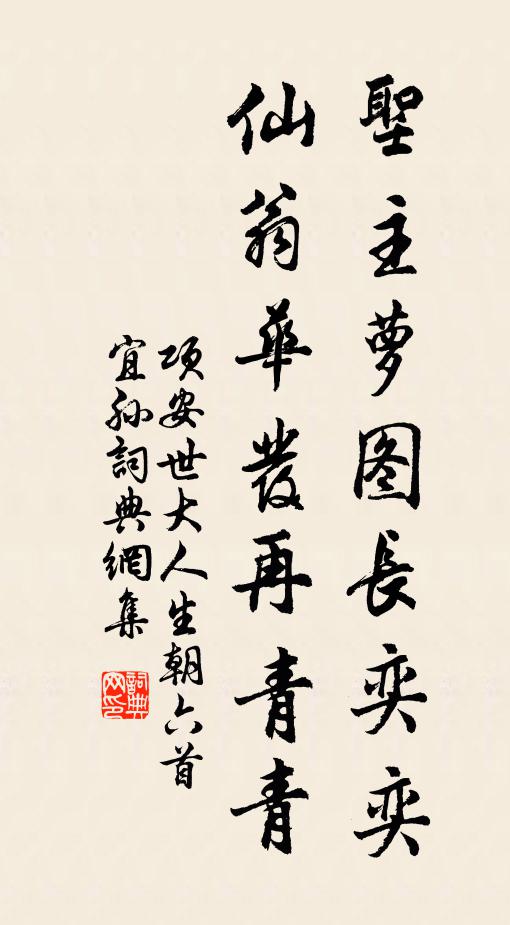 聖主夢图長奕奕
仙翁華发再青青
項安世大人生朝六首
宜孙詞典網集
詞典网印